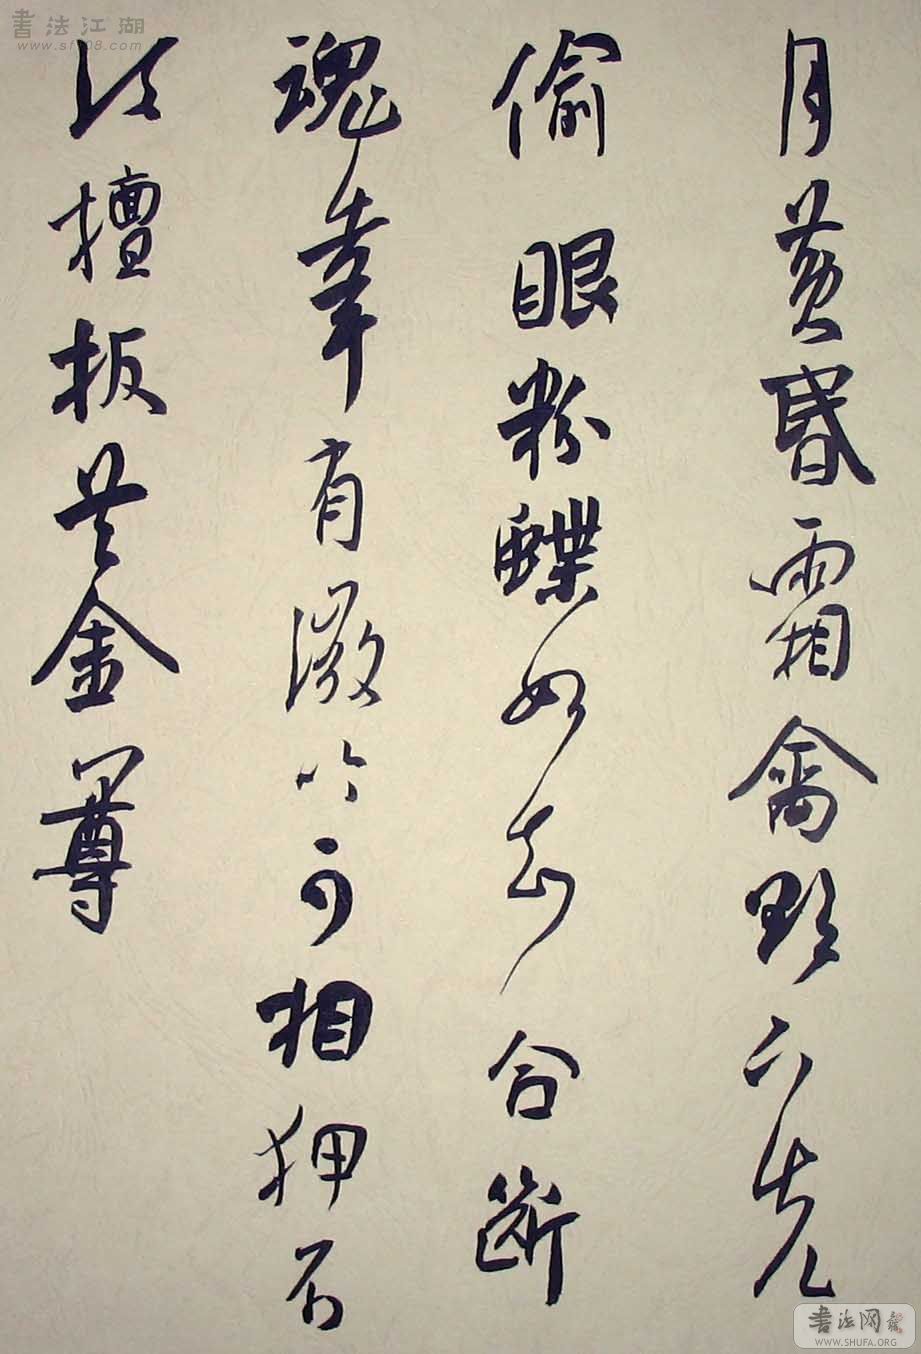 月黄昏霜禽欲下先
偷眼粉蝶如知合断
魂幸有微吟可相狎不
须檀板共金尊
書法江湖
www.sf108.com
書法网
WWW.SHUFA.ORG